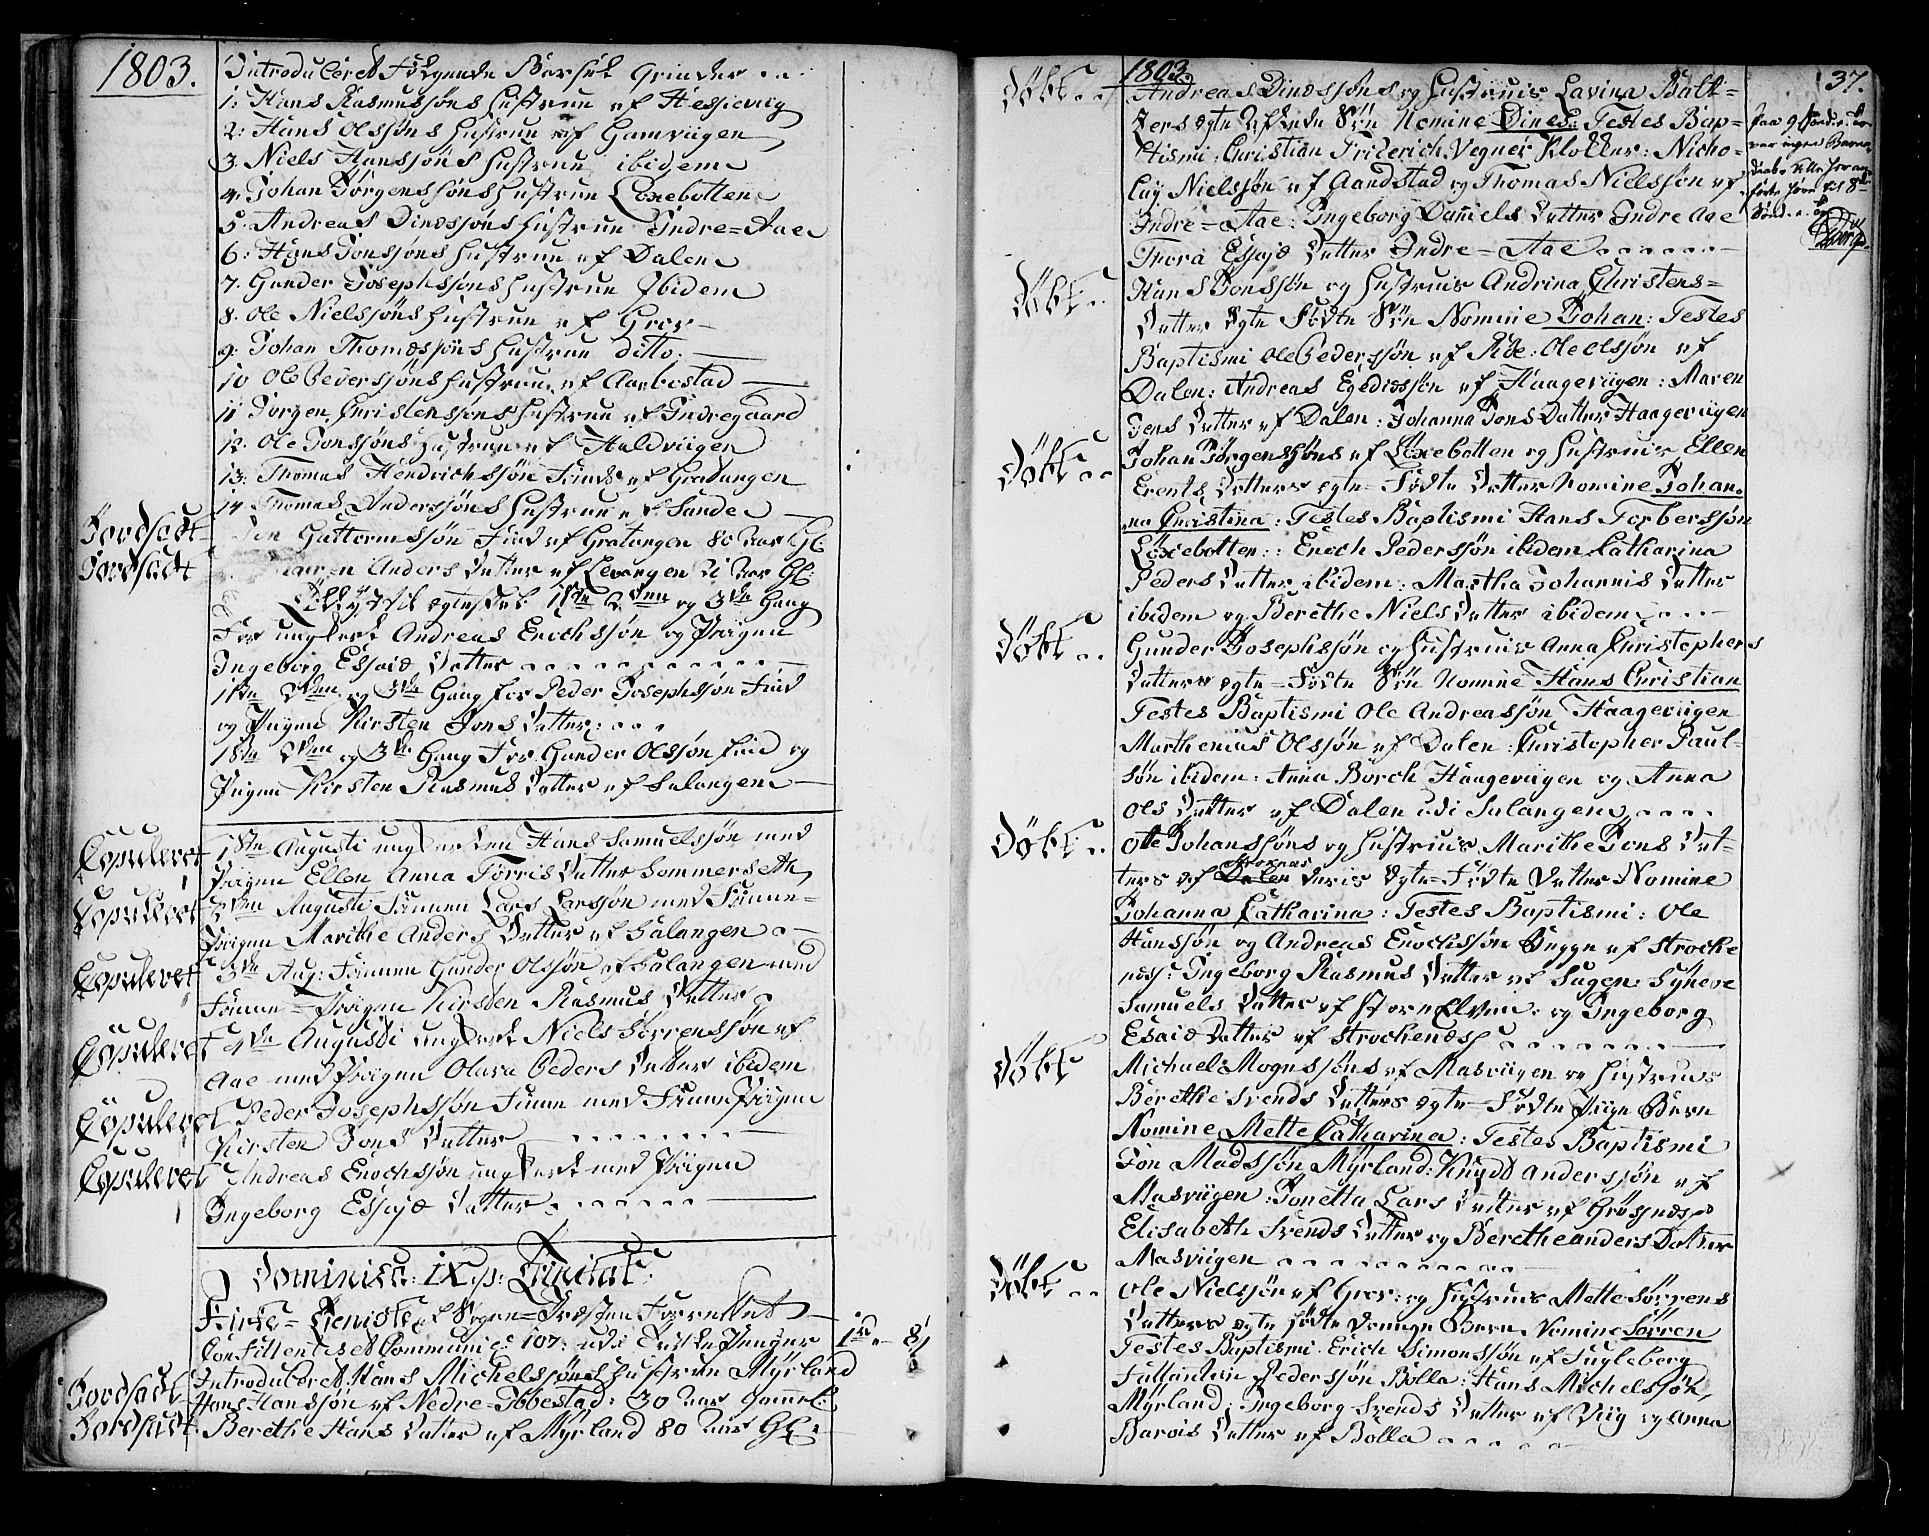 1803.
Introduceret Følgende Barsel Qvinder
1: Hans Rasmussøns Hustrue af Hessjeviig
2: Hans Olssøns Hustrue af Hamviigen
3. Niels Hanssøns Hustrue ibidem
4. Johan Jørgenssøns Hustrue Løxebotten
5. Andreas Dinessøns Hustrue Indre=Aae
6: Hans Jonssøns Hustrue af Dalen
7. Gunder Josephssøns Hustrue Ibidem
8. Ole Nielssøns Hustrue af Grov
9: Johan Thomessøns Hustrue ditto.
10 Ole Pederssøns Hustrue af Aarbostad
11 Jørgen Christenssøns Hustrue af Indregaard
12. Ole Jonssøns Hustrue af Haldviigen
13: Thomas Hendrichssøn Finds af Gratangen
14 Thomas Anderssøns Hustrue af Sande
Jordsadt Jon Guttormssøn Find af Gratangen 80 Aar Gl:
Jordsadt Maren Anders Datter af Levangen 21 Aar Gl:
Tillyst til Egteskab 1ste 2den og 3die Gang
For ungkarl Andreas Enochssøn og Pigen
Ingeborg Essaiæ Datter
1ste 2den og 3die Gang for Peder Josephssøn Find
og Pigen Kirsten Jons Datter:
1ste 2den og 3die Gang For Gunder Olssøn Find og
Pigen Kirsten Rasmus Datter af Salangen
Copuleret 1ste Augusti ungkarlen Hans Samuelssøn med
Pigen Ellen Anna Torris Datter Sommerseth
Copuleret 2den Augusti Finnen Lars Larssøn med Finne=
Pigen Marithe Anders Datter af Salangen
Copuleret 3die Aug: Finnen Gunder Olssøn af Salangen med
Finne=Pigen Kirsten Rasmus Datter
Copuleret 4de Augusti ungkarl Niels Sørrenssøn af
Aae med Pigen Olava Peders Datter ibidem
Copuleret Peder Josephssøn Finne med Finne Pigen
Kirsten Jons Datter
Copuleret Andreas Enochssøn ungkarl med Pigen
Ingeborg Essajæ Datter
Dominica: IX. p: Trinitat:
Kirke=Tieniste af Sogne=Præsten Forrettet
Confitentes et Communic: 107. udi Tavle Penger 1rd - 8/
Introduceret Hans Michelssøns Hustrue Myrland
Jordsadt Hans Hanssøn af Nedre=Ibbestad: 30 Aar Gammel:
Jordsadt Berethe Hans Datter af Myrland 80 Aar Gl:
1803. 37.
Døbt Andreas Dinessøns og Hustruis Lavina Balt=
zers egte Søn Nomine Dines: Testes Bap=
tismi: Christian Friderich Vegner Klokker: Nicho=
lay Nielssøn af Aandstad og Thomas Nielssøn af
Indre=Aae: Ingeborg Daniels Datter Indre Aae
Thora Essajæ Datter Indre=Aae
Paa 9 Søndag
var ingen Børn
8de
Døbt Hans Jonssøn og Hustruis Andrina Christens=
Datter Egte Fødte Søn Nomine Johan: Testes
Baptismi Ole Pederssøn af Røe: Ole Olssøn af
Dalen: Andreas Egediessøn af Haageviigen: Maren
Jens Datter af Dalen: Johanna Jons Datter Haageviigen
Døbt Johan Jørgenssøns af Løxebotten og Hustruis Ellen
Erents Datters egte=Fødte Datter Nomine Johan=
na Christina: Testes Baptismi Hans Torberssøn
Løxebotten:: Enoch Pederssøn ibidem Catharina
Peders Datter ibidem: Martha Johannis Datter
ibidem og Berethe Niels Datter ibidem
Døbt Gunder Josephssøn og Hustruis Anna Christophers
Datters egte=Fødte Søn Nomine Hans Christian
Testes Baptismi Ole Andreassøn Haageviigen
Marthenius Olssøn af Dalen: Christopher Paul=
søn ibidem: Anna Borch Haageviigen og Anna
Ols Datter af Dalen udi Salangen
Døbt Ole Johanssøns og Hustruis Marithe Jons Dat=
ters af Dalen deris Egte=Fødte Datter Nomine
Johanna Catharina: Testes Baptismi: Ole
Hanssøn og Andreas Enochssøn begge af Strochæ
næss: Ingeborg Rasmus Datter af Sagen: Syneve
Samuels Datter af StorElven: og Ingeborg
Esaiæ Datter af Strochenæss
Døbt Michael Mognssøns af Masviigen og Hustrues
Berethe Svends Datters egte=Fødte Pige Barn
Nomine Mette Catharina: Testes Baptismi
Jon Madssøn Myrland: Knydt Anderssøn af
Masviigen: Jonetta Lars Datter af Grøssnæss
Elisabeth Svends Datter og Berethe Anders Datter
Masviigen
Døbt Ole Nielssøn af Grov: og Hustrues Mette Sørrens
Datters egte fødte Drenge Barn Nomine Sørren
Testes Baptismi. Erich Simonssøn af Fugleberg
Fallentin Pederssøn Bolla: Hans Michelssøn
Myrland: Ingeborg Svends Datter af Viig og Anna
Barois Datter af Bolla